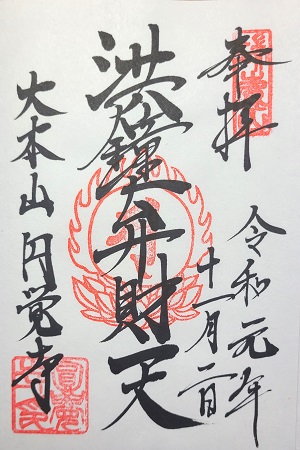 奉拝
令和元年
十一月二日
洪鐘大弁財天
大本山円覚寺